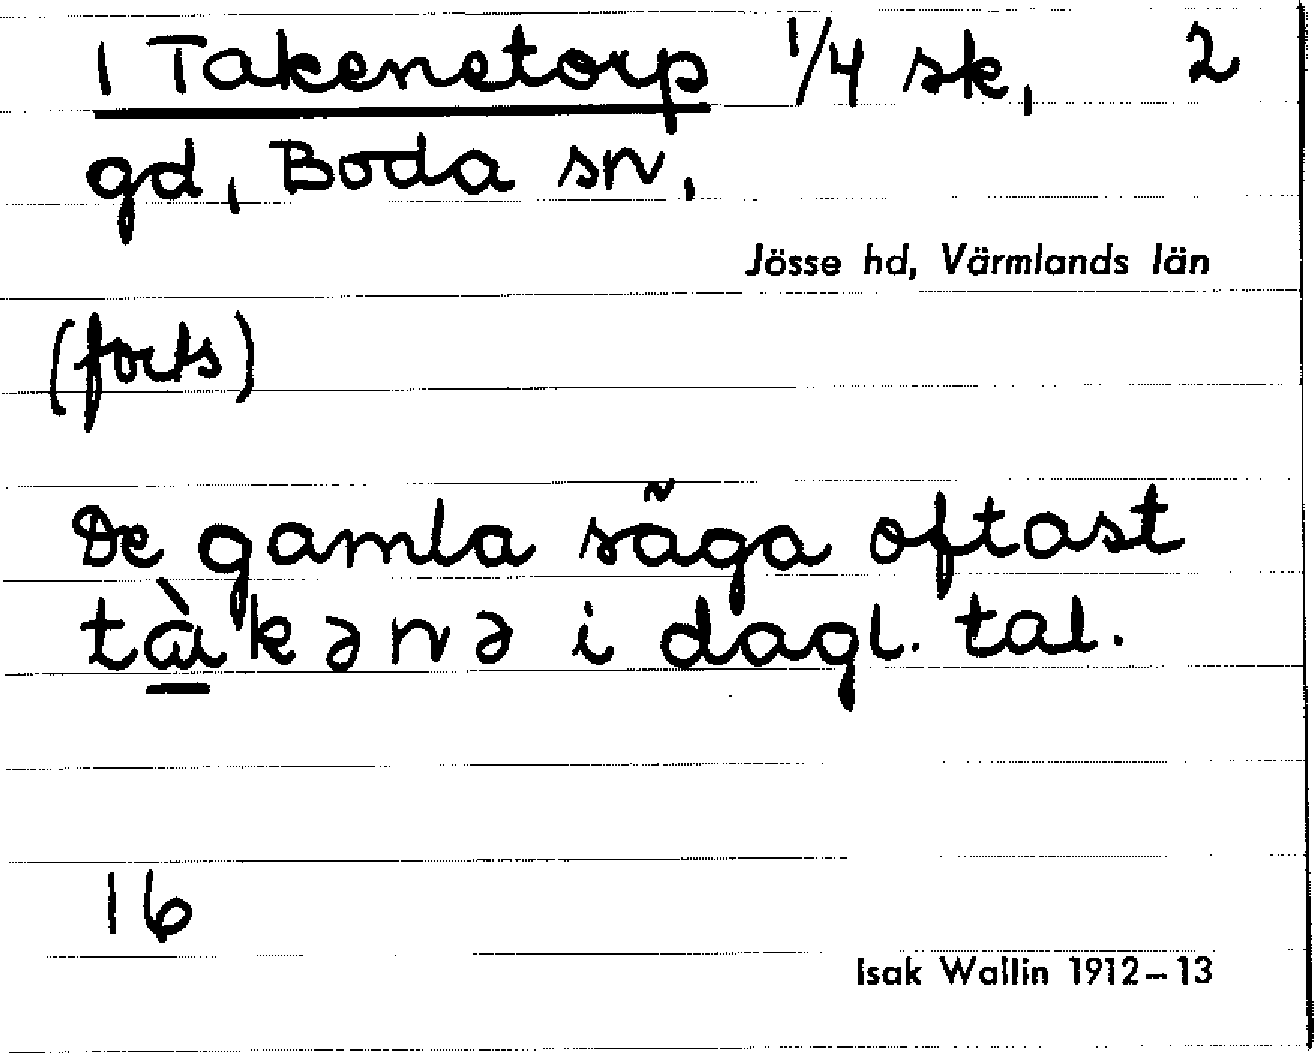 1 Takenetorp 1/4 sk, 2
gd, Boda sn,
Jösse hd, Värmlands län
(forts)
De gamla säga oftast
tɑ̀kənə i dagl. tal.
16
Isak Wallin 1912–13